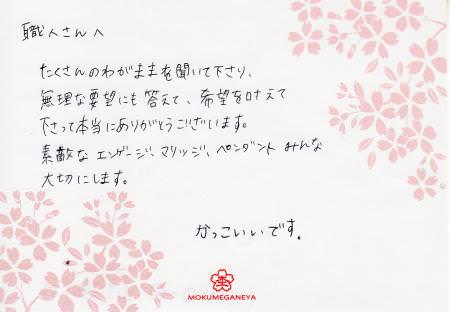 職人さんへ
たくさんのわがままを聞いて下さり、
無理な要望にも答えて、希望を叶えて
下さって本当にありがとうございます。
素敵な エンゲージ、マリッジ、ペンダント みんな
大切にします。
かっこいいです.
MOKUMEGANEYA